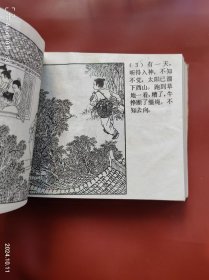 (3) 有一天，
听得入神，不知
不觉，太阳已溜
下西山。跑到草
地一看，糟了，牛
挣断了缰绳，不
知去向。
2024.10.11